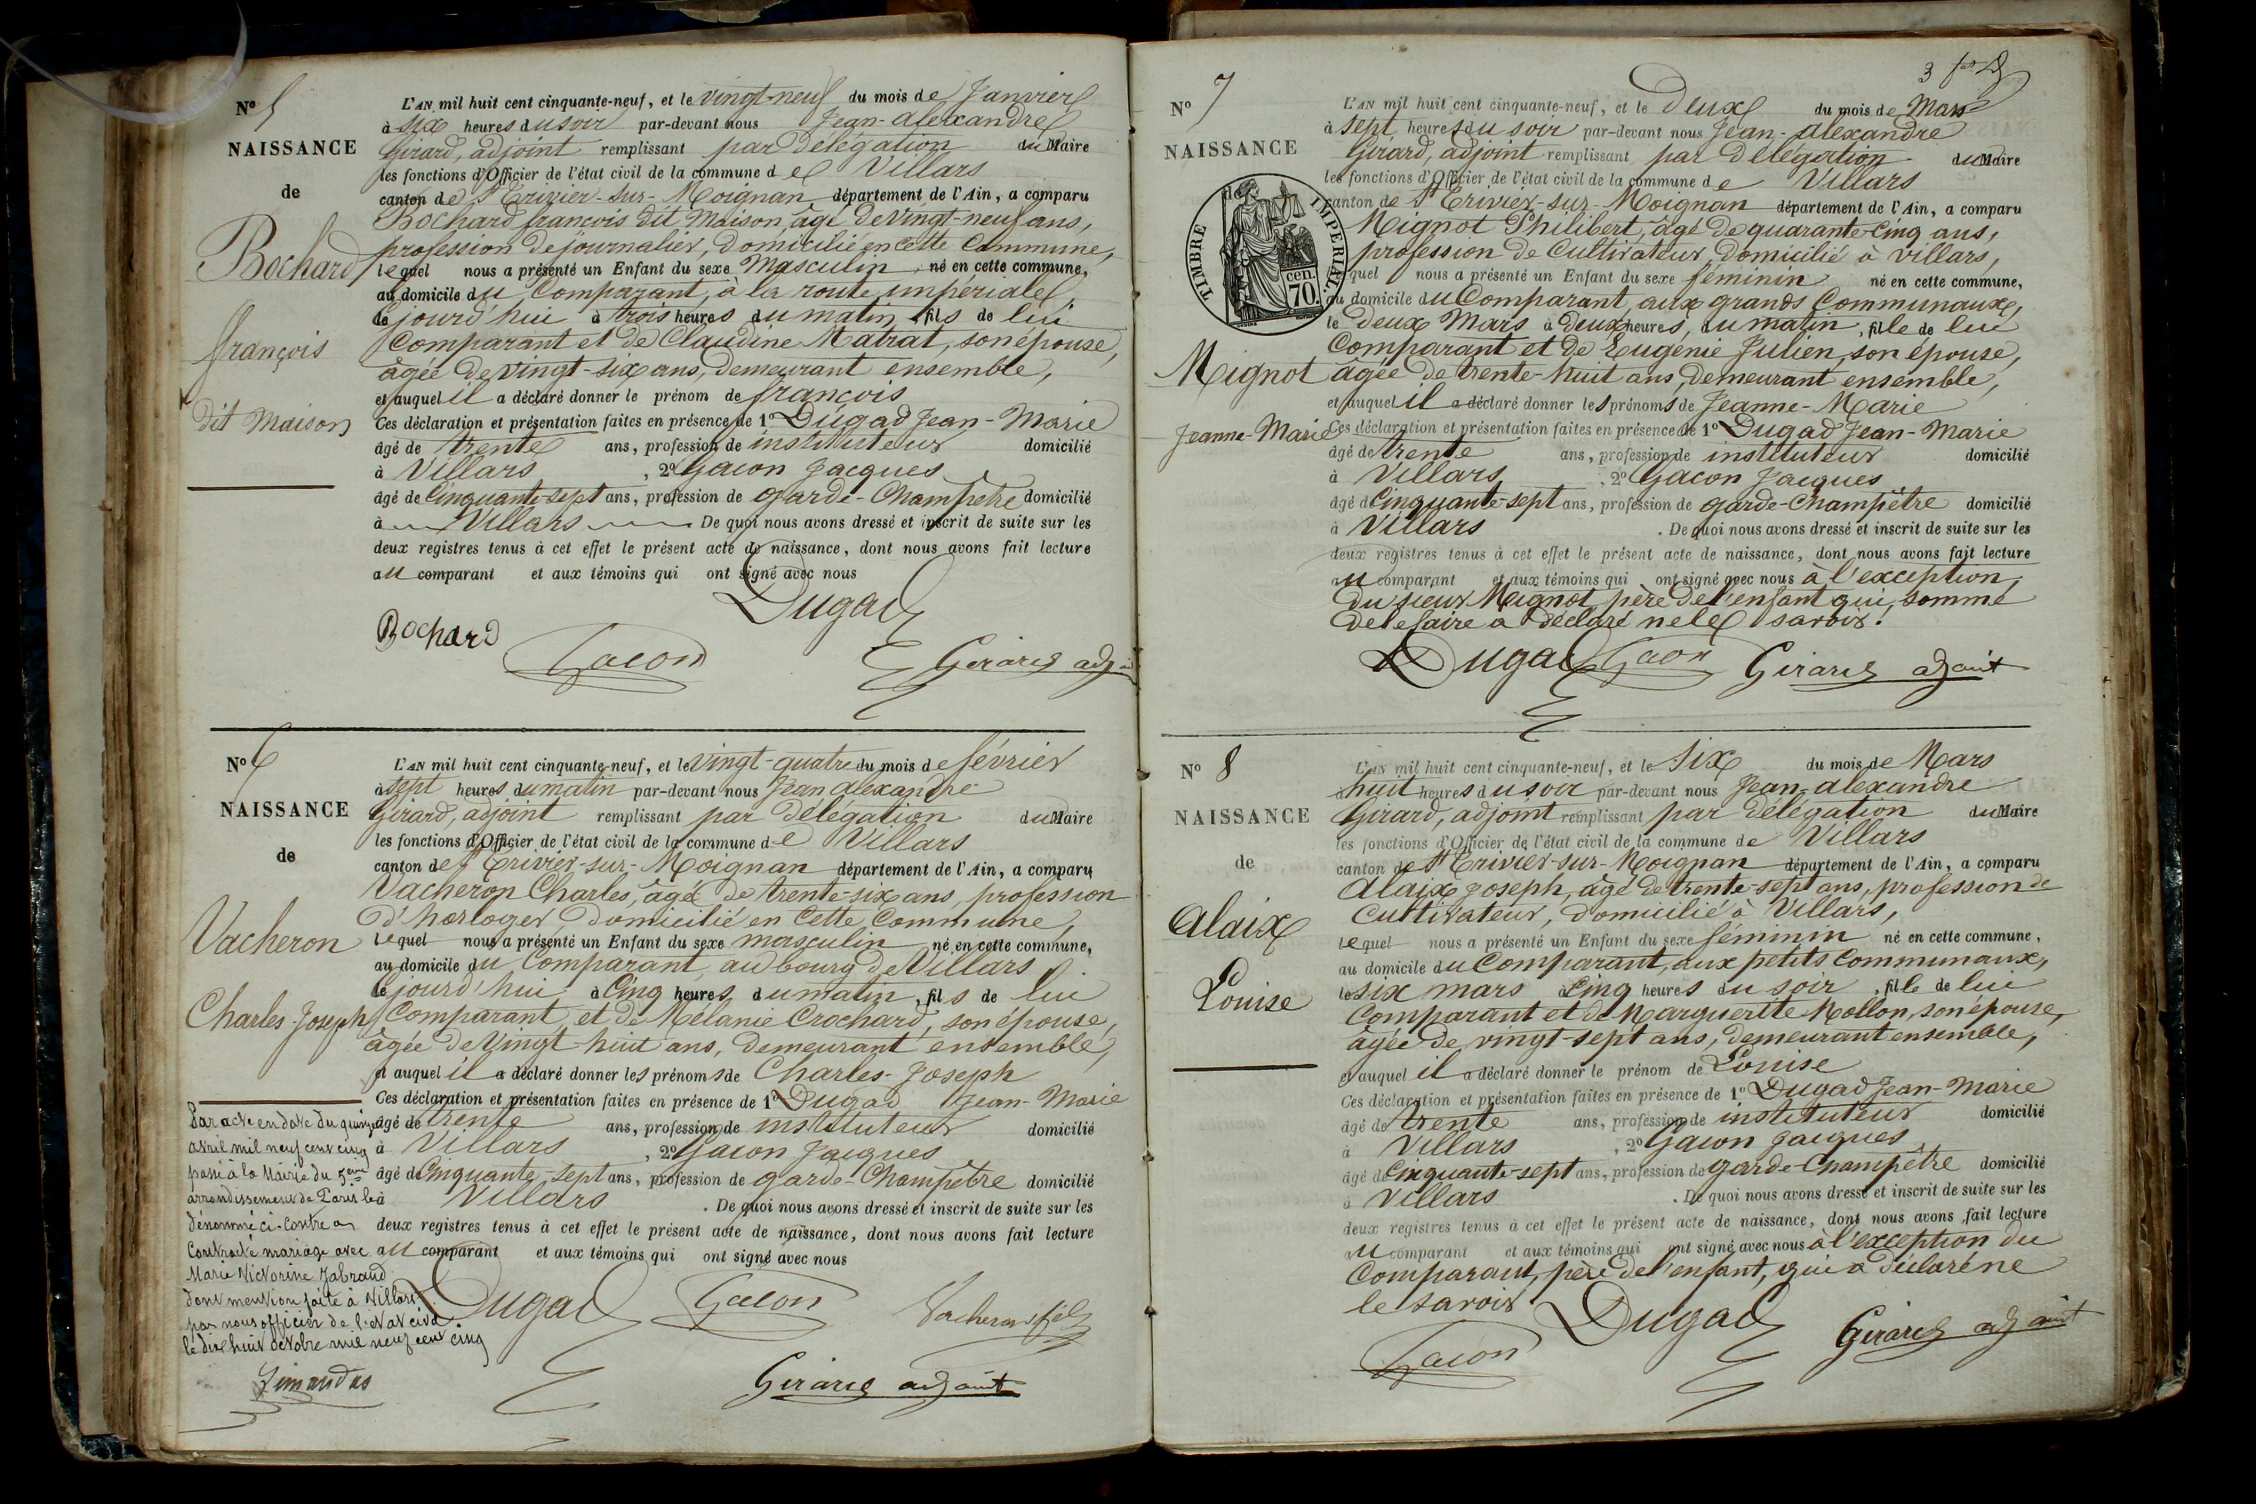 No 5
NAISSANCE
de
Bochard
françois
dit Maison
L'AN mil huit cent cinquante-neuf, et le vingt-neuf du mois de Janvier
à six heures du soir par-devant nous Jean-alexandre
Girard, adjoint remplissant par délégation du Maire
les fonctions d'Officier de l'état civil de la commune de Villars
canton de St Trivier-sur-Moignan département de l'Ain, a comparu
Bochard françois dit Maison, âgé de vingt-neuf ans,
profession de journalier, domicilié en cette Commune,
lequel nous a présenté un Enfant du sexe Masculin, né en cette commune,
au domicile du Comparant, à la route impériale,
le jourd'hui à trois heures du matin, fils de lui
Comparant et de Claudine Matrat, son épouse,
âgée de vingt-six ans, demeurant ensemble,
et auquel il a déclaré donner le prénom de françois
Ces déclaration et présentation faites en présence de 1o Dugad Jean-Marie
âgé de trente ans, profession de instituteur domicilié
à Villars, 2o Gacon Jacques
âgé de Cinquante-sept ans, profession de garde-Champêtre domicilié
à Villars De quoi nous avons dressé et inscrit de suite sur les
deux registres tenus à cet effet le présent acte de naissance, dont nous avons fait lecture
au comparant et aux témoins qui ont signé avec nous
Dugad
Bochard
Gacon
Girard adj
No 6
NAISSANCE
de
Vacheron
Charles-Joseph
L'AN mil huit cent cinquante-neuf, et le vingt-quatre du mois de février
à sept heures du matin par-devant nous Jean alexandre
Girard, adjoint remplissant par délégation du Maire
les fonctions d'Officier de l'état civil de la commune de Villars
canton de St Trivier-sur-Moignan département de l'Ain, a comparu
Vacheron Charles, âgé de trente-six ans, profession
d'horloger, domicilié en cette Commune,
lequel nous a présenté un Enfant du sexe masculin, né en cette commune,
au domicile du Comparant, au bourg de Villars,
le jourd'hui à Cinq heures du matin, fils de lui
Comparant, et de Mélanie Crochard, son épouse,
âgée de Vingt-huit ans, demeurant ensemble,
et auquel il a déclaré donner les prénoms de Charles-Joseph
Ces déclaration et présentation faites en présence de 1o Dugad Jean-Marie
âgé de trente ans, profession de instituteur domicilié
à Villars, 2o Gacon Jacques
âgé de Cinquante-sept ans, profession de garde-Champêtre domicilié
à Villars. De quoi nous avons dressé et inscrit de suite sur les
deux registres tenus à cet effet le présent acte de naissance, dont nous avons fait lecture
au comparant et aux témoins qui ont signé avec nous
Par acte en date du quinze
avril mil neuf cent cinq
passé à la Mairie du 5ème
arrondissement de Paris le
dénommé ci-contre a
contracté mariage avec
Marie Victorine Jabraud
dont mention faite à Villars
par nous officier de l'état civil
le dix huit octobre mil neuf cent cinq
Dugad
Gacon
Vacheron fils
Girard adjoint
3
No 7
NAISSANCE
de
TIMBRE IMPERIAL
70 cen.
Mignot
Jeanne-Marie
L'AN mil huit cent cinquante-neuf, et le Deux du mois de Mars
à sept heures du soir par-devant nous Jean-alexandre
Girard, adjoint remplissant par délégation du Maire
les fonctions d'Officier de l'état civil de la commune de Villars
canton de St Trivier-sur-Moignan département de l'Ain, a comparu
Mignot Philibert, âgé de quarante-Cinq ans,
profession de Cultivateur, domicilié à villars,
lequel nous a présenté un Enfant du sexe féminin né en cette commune,
au domicile du Comparant, aux grands Communaux,
le deux Mars à Deux heures, du matin, fille de lui
Comparant et de Eugénie Julien, son épouse,
âgée de trente-huit ans, demeurant ensemble,
et auquel il a déclaré donner les prénoms de Jeanne-Marie
Ces déclaration et présentation faites en présence de 1o Dugad Jean-Marie
âgé de trente ans, profession de instituteur domicilié
à Villars, 2o Gacon Jacques
âgé de Cinquante-sept ans, profession de garde-Champêtre domicilié
à Villars. De quoi nous avons dressé et inscrit de suite sur les
deux registres tenus à cet effet le présent acte de naissance, dont nous avons fait lecture
au comparant et aux témoins qui ont signé avec nous à l'exception,
du sieur Mignot père de l'enfant qui, sommé
de le faire a déclaré ne le savoir.
Dugad Gacon Girard adjoint
No 8
NAISSANCE
de
Alaix
Louise
L'AN mil huit cent cinquante-neuf, et le Six du mois de Mars
à huit heures du soir par-devant nous Jean-alexandre
Girard, adjoint remplissant par délégation du Maire
les fonctions d'Officier de l'état civil de la commune de Villars
canton de St Trivier-sur-Moignan département de l'Ain, a comparu
Alaix Joseph, âgé de trente-sept ans, profession de
Cultivateur, domicilié à Villars,
lequel nous a présenté un Enfant du sexe féminin né en cette commune,
au domicile du Comparant, aux petits Communaux,
le six mars à Cinq heures du soir, fille de lui
Comparant et de Marguerite Mollon, son épouse,
âgée de vingt-sept ans, demeurant ensemble,
et auquel il a déclaré donner le prénom de Louise
Ces déclaration et présentation faites en présence de 1o Dugad Jean-Marie
âgé de trente ans, profession de instituteur domicilié
à Villars, 2o Gacon Jacques
âgé de Cinquante-sept ans, profession de garde-Champêtre domicilié
à Villars. De quoi nous avons dressé et inscrit de suite sur les
deux registres tenus à cet effet le présent acte de naissance, dont nous avons fait lecture
au comparant et aux témoins qui ont signé avec nous à l'exception du
Comparant, père de l'enfant, qui a déclaré ne
le savoir
Dugad
Gacon
Girard adjoint